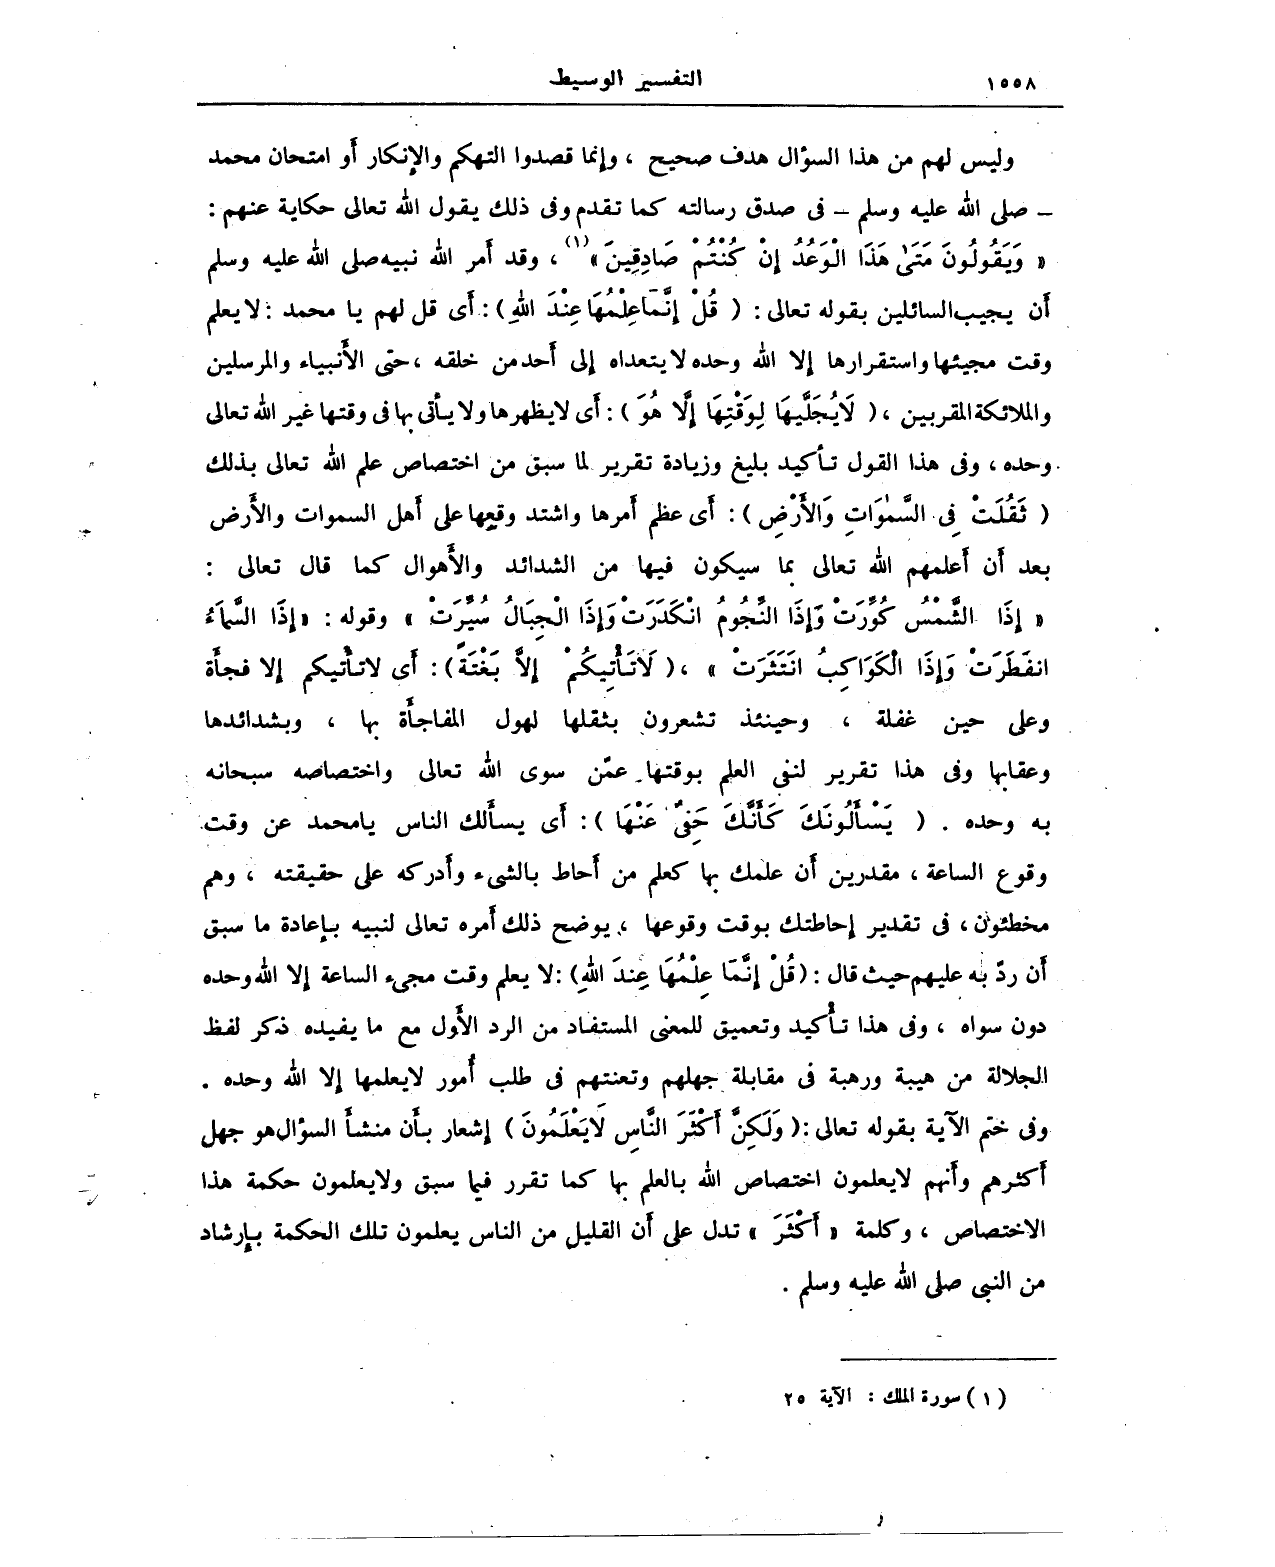 ١٥٥٨ التفسير الوسيط
وليس لهم من هذا السؤال هدف صحيح ، وإنما قصدوا التهكم والإنكار أو امتحان محمد
– صلى الله عليه وسلم – فى صدق رسالته كما تقدم وفى ذلك يقول الله تعالى حكاية عنهم :
« وَيَقُولُونَ مَتَىٰ هَذَا الْوَعْدُ إِنْ كُنْتُمْ صَادِقِينَ »(١) ، وقد أمر الله نبيه صلى الله عليه وسلم
أن يجيب السائلين بقوله تعالى : ( قُلْ إِنَّمَا عِلْمُهَا عِنْدَ اللهِ ) : أى قل لهم يا محمد : لا يعلم
وقت مجيئها واستقرارها إلا الله وحده لا يتعداه إلى أحد من خلقه ، حتى الأنبياء والمرسلين
والملائكة المقربين ، ( لَا يُجَلِّيهَا لِوَقْتِهَا إِلَّا هُوَ ) : أى لا يظهرها ولا يأتى بها فى وقتها غير الله تعالى
وحده ، وفى هذا القول تأكيد بليغ وزيادة تقرير لما سبق من اختصاص علم الله تعالى بذلك
( ثَقُلَتْ فِى السَّمٰوَاتِ وَالأَرْضِ ) : أى عظم أمرها واشتد وقعها على أهل السموات والأرض
بعد أن أعلمهم الله تعالى بما سيكون فيها من الشدائد والأهوال كما قال تعالى :
« إِذَا الشَّمْسُ كُوِّرَتْ وَإِذَا النُّجُومُ انْكَدَرَتْ وَإِذَا الْجِبَالُ سُيِّرَتْ » وقوله : « إِذَا السَّمَاءُ
انفَطَرَتْ وَإِذَا الْكَوَاكِبُ انتَثَرَتْ » ، ( لَا تَأْتِيكُمْ إِلاَّ بَغْتَةً ) : أى لا تأتيكم إلا فجأة
وعلى حين غفلة ، وحينئذ تشعرون بثقلها لهول المفاجأة بها ، وبشدائدها
وعقابها وفى هذا تقرير لنفى العلم بوقتها عمّن سوى الله تعالى واختصاصه سبحانه
به وحده . ( يَسْأَلُونَكَ كَأَنَّكَ حَفِىٌّ عَنْهَا ) : أى يسألك الناس يا محمد عن وقت
وقوع الساعة ، مقدرين أن علمك بها كعلم من أحاط بالشىء وأدركه على حقيقته ، وهم
مخطئون ، فى تقدير إحاطتك بوقت وقوعها ، يوضح ذلك أمره تعالى لنبيه بإعادة ما سبق
أن ردّ به عليهم حيث قال : ( قُلْ إِنَّمَا عِلْمُهَا عِندَ اللهِ ) : لا يعلم وقت مجىء الساعة إلا الله وحده
دون سواه ، وفى هذا تأكيد وتعميق للمعنى المستفاد من الرد الأول مع ما يفيده ذكر لفظ
الجلالة من هيبة ورهبة فى مقابلة جهلهم وتعنتهم فى طلب أمور لا يعلمها إلا الله وحده .
وفى ختم الآية بقوله تعالى : ( وَلَكِنَّ أَكْثَرَ النَّاسِ لَا يَعْلَمُونَ ) إشعار بأن منشأ السؤال هو جهل
أكثرهم وأنهم لا يعلمون اختصاص الله بالعلم بها كما تقرر فيما سبق ولا يعلمون حكمة هذا
الاختصاص ، وكلمة « أَكْثَرَ » تدل على أن القليل من الناس يعلمون تلك الحكمة بإرشاد
من النبى صلى الله عليه وسلم .
( ١ ) سورة الملك : الآية ٢٥